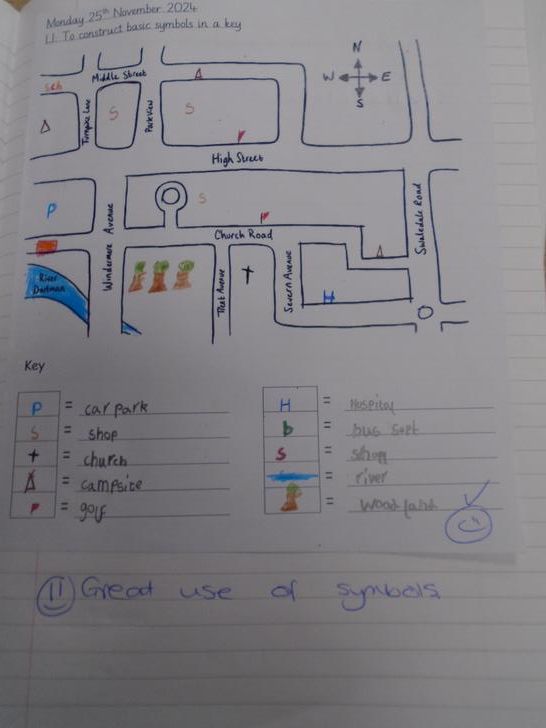 Monday 25th November 2024
LI: To construct basic symbols in a key
N
W E
S
Middle Street
sch
Turnpike Lane
S
Park View
S
High Street
P
S
Windermere Avenue
Church Road
Swaledale Road
River
Dartman
Thet Avenue
Severn Avenue
H
Key
P = car park
S = shop
= church
= campsite
= golf
H = Hospital
b = bus sopt
S =
= river
= woodland
Great use of symbols